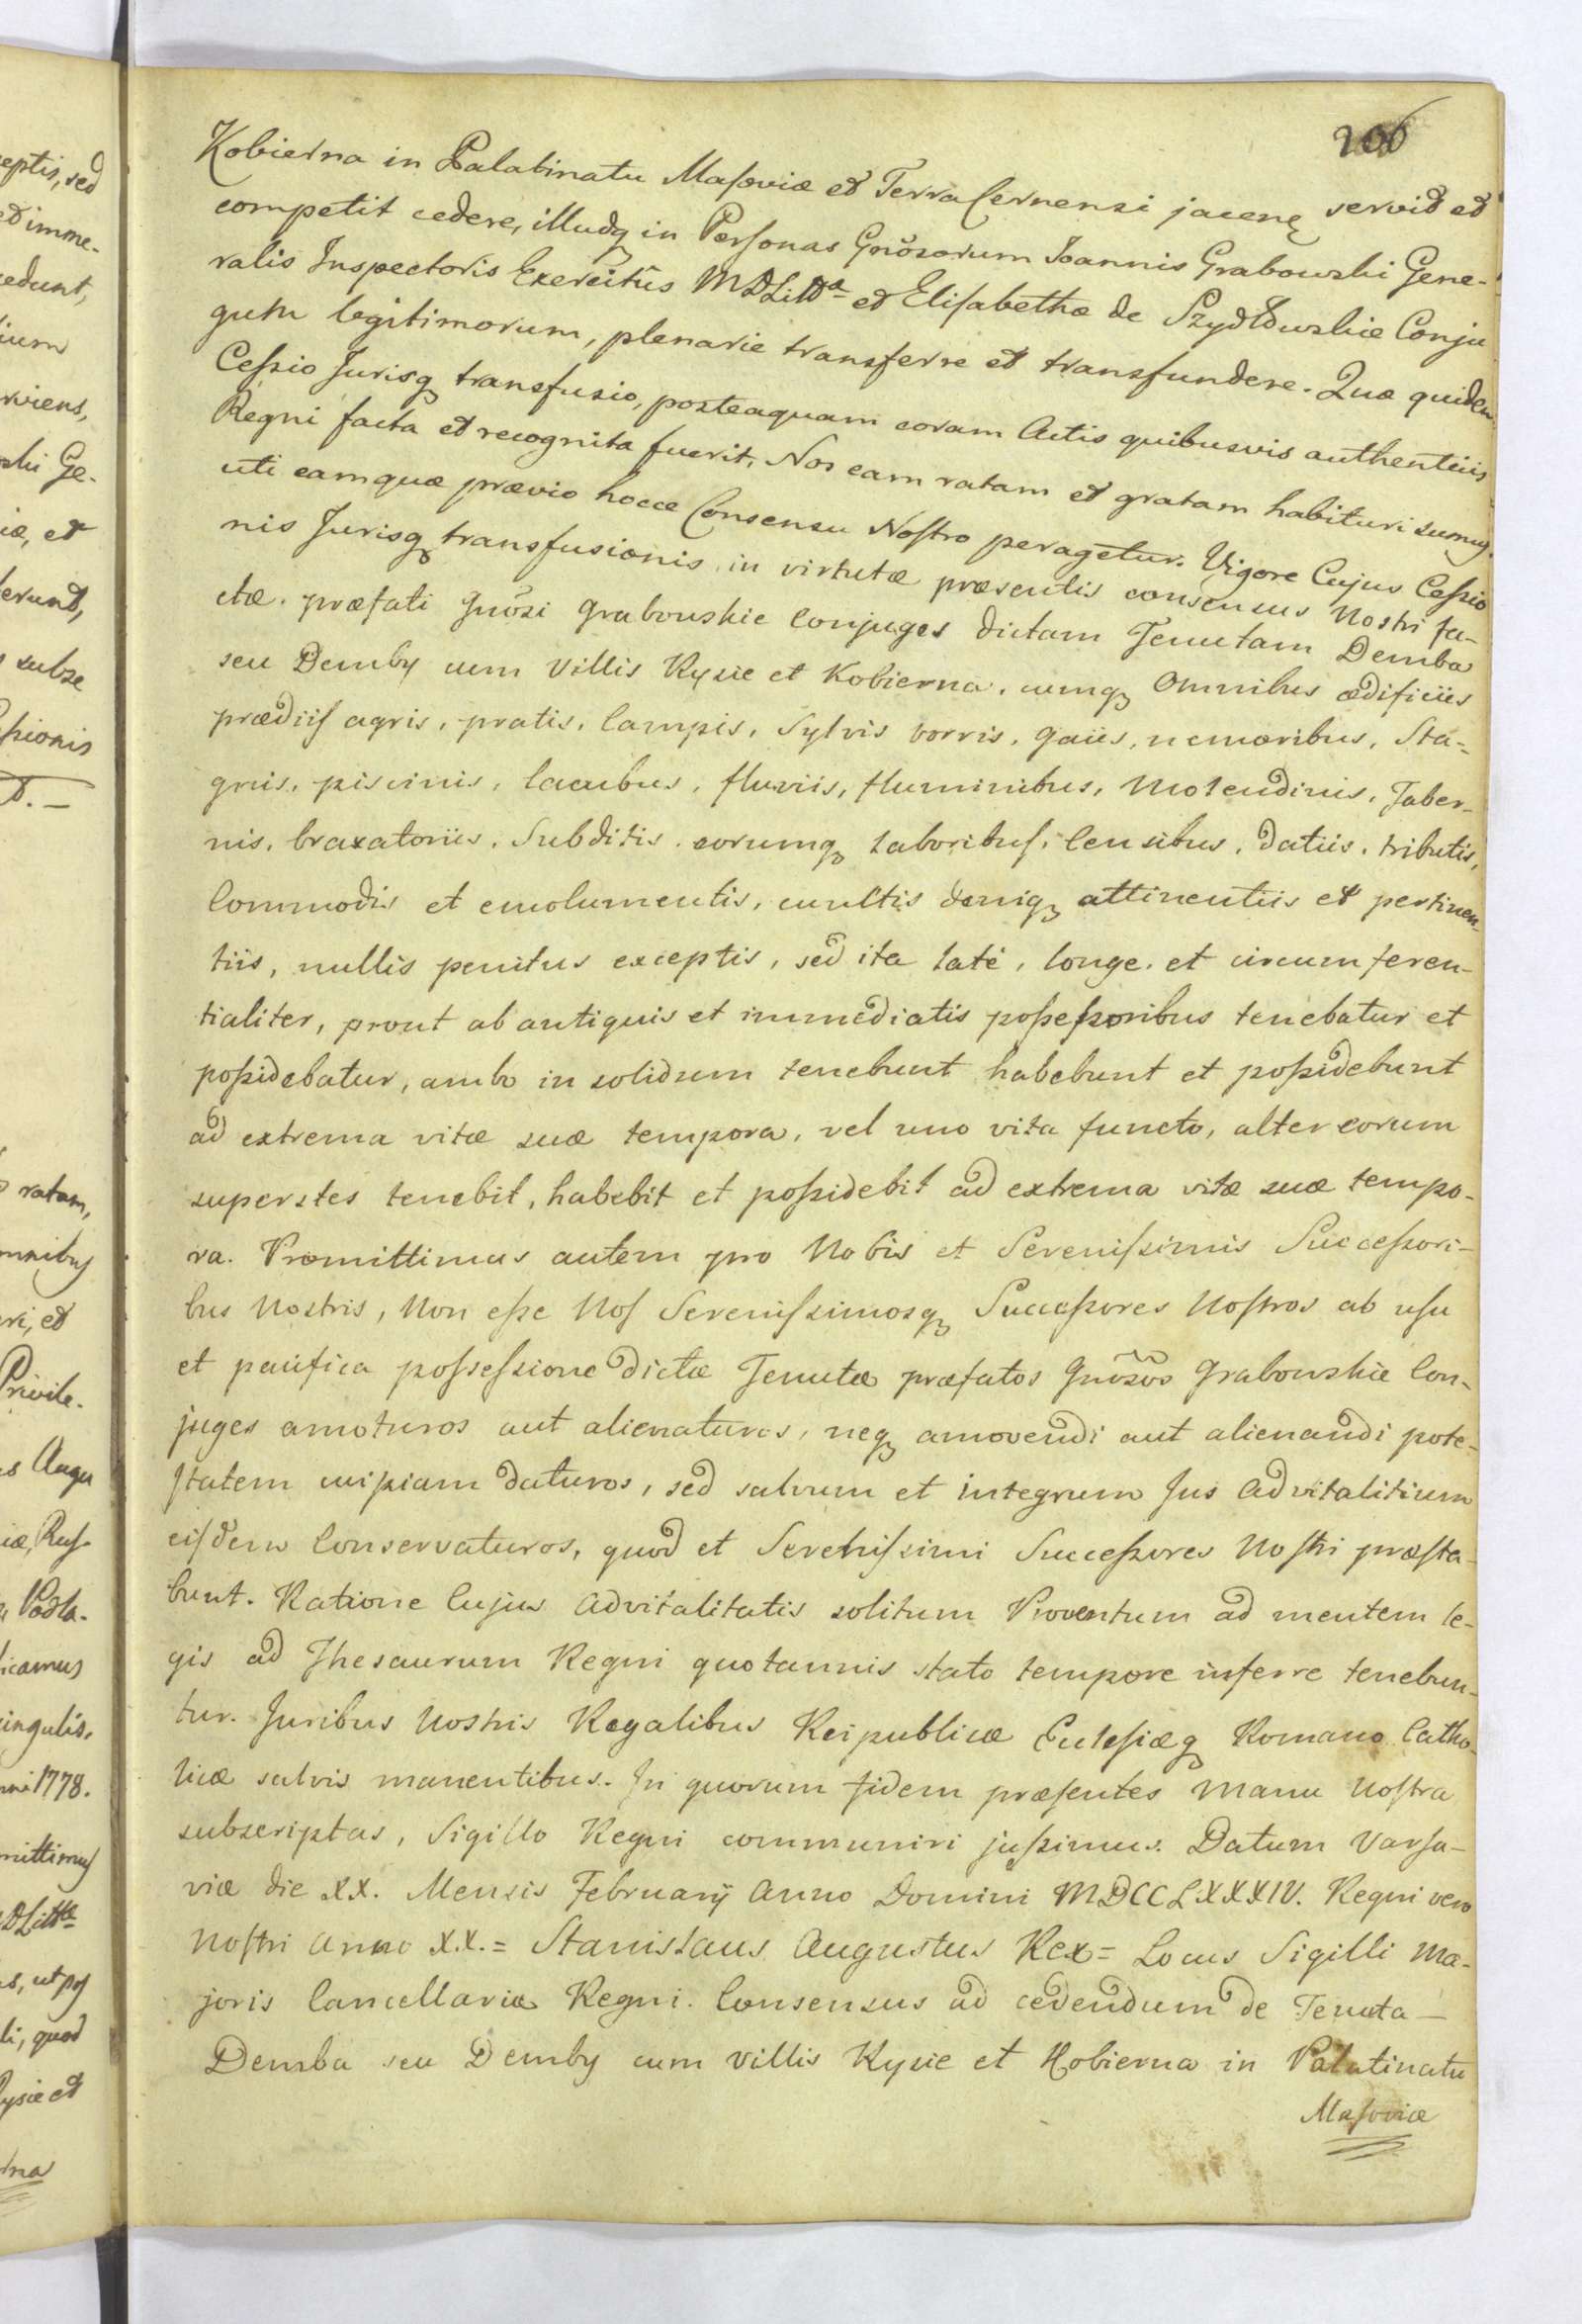 206
Kobierna in Palatinatu Masoviæ et Terra Cernensi jacenę servit et
competit cedere, illudq in Personas Gnosorum Joannis Grabowski Gene-
ralis Inspectoris Exercitûs MDLittæ et Elisabethæ de Szydłowskie Conju
gum legitimorum, plenarie transferre et transfundere. Quæ quidem
Cessio Jurisq transfusio, posteaquam coram Actis quibusvis authenticis
Regni facta et recognita fuerit, Nos eam ratam et gratam habituri sumus.
uti eamquæ prævio hocce Consensu Nostro peragetur. Vigore Cujus Cessio
nis Jurisq transfusionis in virtutæ præsentis consensus Nostri fa-
ctæ. præfati Gnosi Grabowskie Conjuges dictam Tenutam Demba
seu Demby cum Villis Kysie et Kobierna, cumq Omnibus ædificiis
prædiis agris, pratis, Campis, Sylvis borris, gaiis, nemoribus, Sta-
gnis, piscinis, lacubus, fluviis, fluminibus, Molendinis, Taber-
nis, braxatoriis, Subditis eorumq laboribus, Censibus, datiis, tributis,
Commodis et emolumentis, cunctis deniq attinentiis et pertinen
tiis, nullis penitus exceptis, sed ita latè, longe, et circumferen-
tialiter, prout ab antiquis et immediatis possessoribus tenebatur et
possidebatur, ambo in solidum tenebunt habebunt et possidebunt
ad extrema vitæ suæ tempora, vel uno vita functo, alter eorum
superstes tenebit, habebit et possidebit ad extrema vitæ suæ tempo-
ra. Promittimus autem pro Nobis et Serenissimis Successori-
bus Nostris, Non esse Nos Serenissimosq Successores Nostros ab usu
et pacifica possessione dictæ Tenutæ præfatos Gnosos Grabowskie Con-
juges amoturos aut alienaturos, neq amovendi aut alienandi pote-
statem cuipiam daturos, sed salvum et integrum Jus Advitalitium
eisdem Conservaturos, quod et Serenissimi Successores Nostri præsta-
bunt. Ratione Cujus Advitalitatis solitum Proventum ad mentem le-
gis ad Thesaurum Regni quotannis stato tempore inferre tenebun-
tur. Juribus Nostris Regalibus Reipublicæ Ecclesiæq Romano Catho-
licæ salvis manentibus. In quorum fidem præsentes Manu Nostra
subscriptas, Sigillo Regni communiri jussimus. Datum Varsa-
viæ die XX. Mensis Februarij Anno Domini MDCCLXXXIV. Regni vero
Nostri Anno XX. = Stanislaus Augustus Rex = Locus Sigilli Ma-
joris Cancellariæ Regni. Consensus ad cedendum de Tenuta —
Demba seu Demby cum Villis Kysie et Kobierna in Palatinatu
Masoviæ